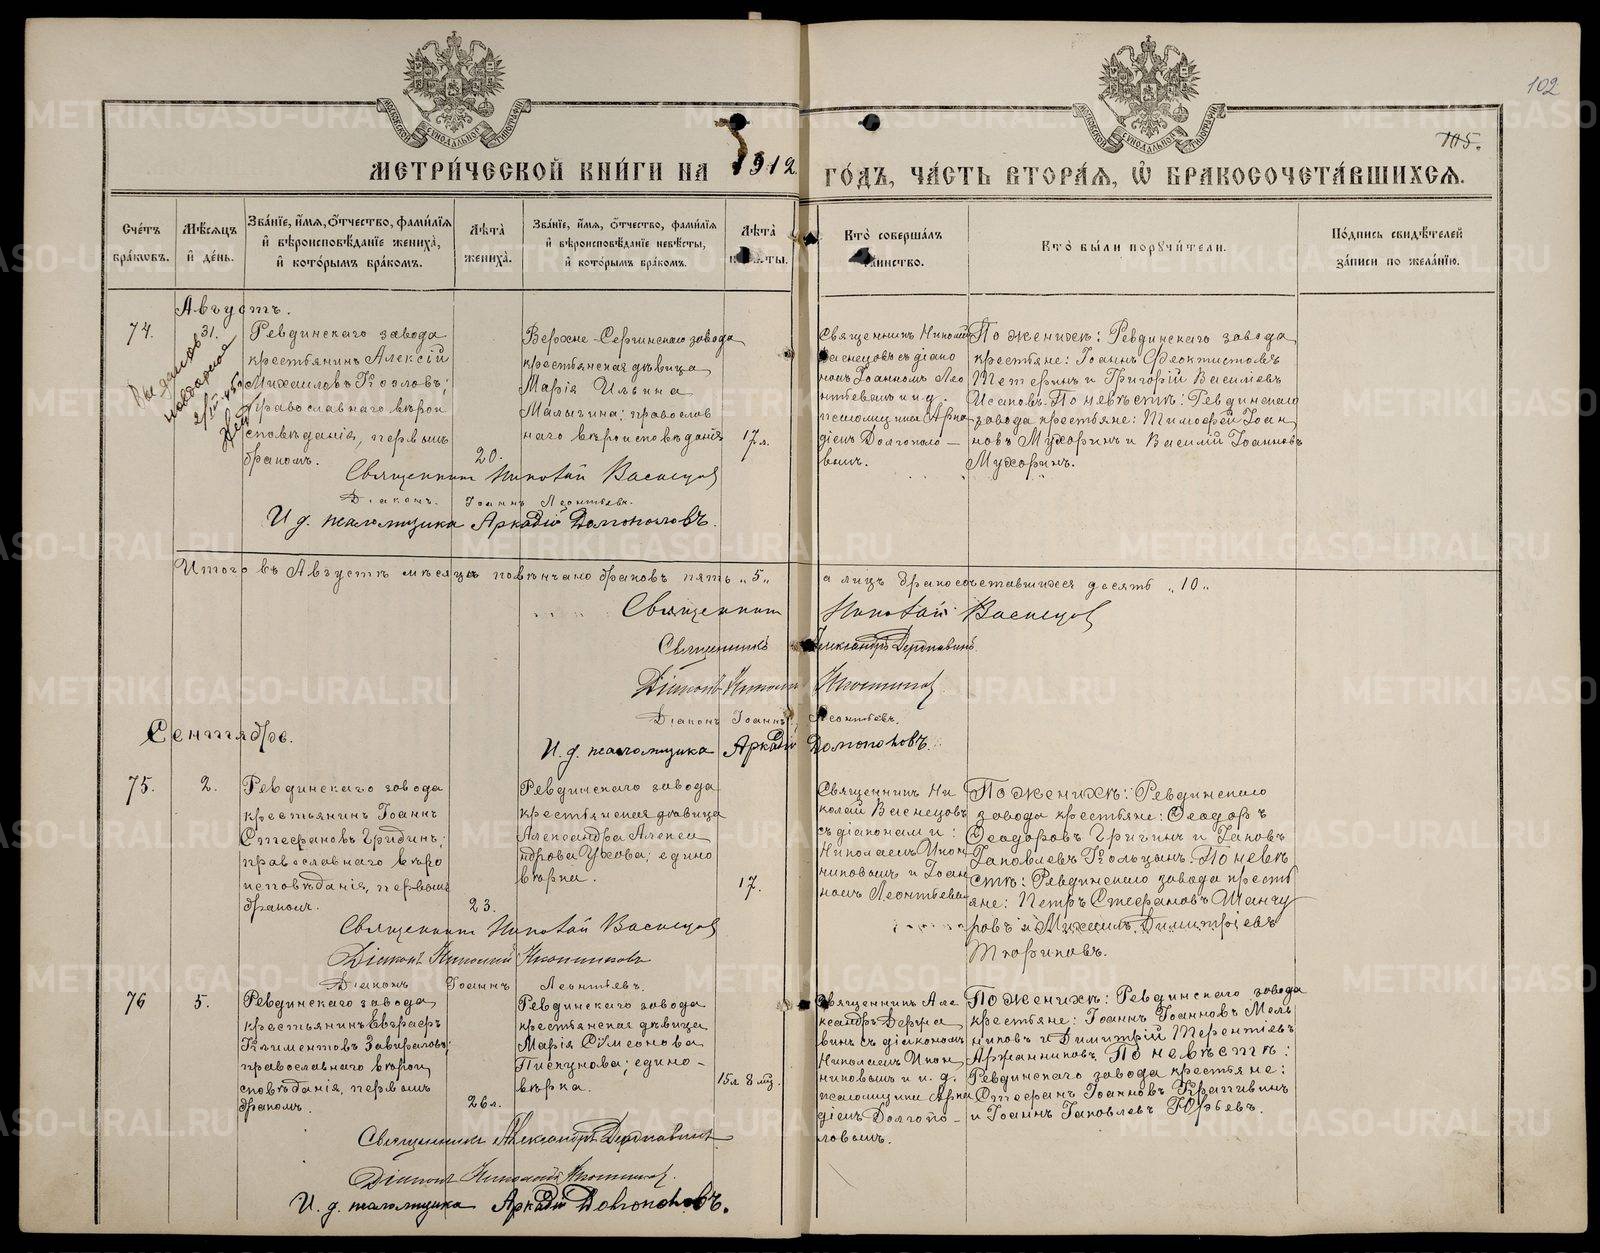 102
105.
МЕТРИ́ЧЕСКОЙ КНИ́ГИ НА 1912 ГО́ДЪ, ЧА́СТЬ ВТОРА́Я, Ѡ БРАКОСОЧЕТА́ВШИХСЯ.
Сче́тъ бра́кѡвъ.
Мѣ́сяцъ и҆ де́нь.
Зва́нїе, и҆́мя, ѻ҆́тчество, фами́лїя
и҆ вѣроисповѣ́данїе жениха̀,
и҆ кото́рымъ бра́комъ.
Лѣ́та жениха̀.
Зва́нїе, и҆́мя, ѻ҆́тчество, фами́лїя
и҆ вѣроисповѣ́данїе невѣ́сты,
и҆ кото́рымъ бра́комъ.
Лѣ́та
Кто̀ соверша́лъ
таинство.
Кто̀ бы́ли порꙋчи́тели.
По́дпись свидѣ́телей
за́писи по жела́нїю.
Августъ.
74.
31.
Ревдинскаго завода
крестьянинъ Алексій
Михаиловъ Козловъ;
православнаго вѣрои
сповѣданія, первымъ
бракомъ.
20.
Верхне-Сергинскаго завода
крестьянская дѣвица
Марія Ильина
Малыгина; православ
наго вѣроисповѣданія
17 л.
Священникъ Николай
Васнецовъ съ діако
номъ Іоанномъ Лео
нтьевымъ и и. д.
псаломщика Арка
діемъ Долгополо-
вымъ.
По женихѣ: Ревдинскаго завода
крестьяне: Іоаннъ Феоктистовъ
Тетеринъ и Григорій Василіевъ
Исаковъ. По невѣстѣ: Ревдинскаго
завода крестьяне: Тимофей Іоан
новъ Мухоринъ и Василій Іоанновъ
Мухоринъ.
Священникъ Николай Васнецов
Діаконъ Іоаннъ Леонтьевъ.
И. д. псаломщика Аркадій Долгополовъ.
Итого въ Августѣ мѣсяцѣ повѣнчано браковъ пять „5„ а лицъ бракосочетавшихся десять „10„
Священникъ Николай Васнецов
Священникъ Александръ Державинъ.
Діаконъ Николай Иконников.
Діаконъ Іоаннъ Леонтьевъ.
И. д. псаломщика Аркадій Долгополовъ.
Сентябрь.
75.
2.
Ревдинскаго завода
крестьянинъ Іоаннъ
Стефановъ Гридинъ;
православнаго вѣро
исповѣданія, первымъ
бракомъ.
23.
Ревдинскаго завода
крестьянская дѣвица
Александра Алекса
ндрова Ухова; едино
вѣрка.
17.
Священникъ Ни
колай Васнецовъ
съ діаконами:
Николаемъ Икон
никовымъ и Іоан
номъ Леонтьевымъ
По женихѣ: Ревдинскаго
завода крестьяне: Ѳеодоръ
Ѳеодоровъ Григинъ и Іаковъ
Іаковлевъ Кольцынъ. По невѣ
стѣ: Ревдинскаго завода кресть
яне: Петръ Стефановъ Шанчу
ровъ и Михаилъ Димитріевъ
Тюриковъ.
Священникъ Николай Васнецов
Діаконъ Николай Иконниковъ
Діаконъ Іоаннъ Леонтьевъ.
76
5.
Ревдинскаго завода,
крестьянинъ Евграфъ
Климентовъ Завираловъ;
православнаго вѣрои
сповѣданія, первымъ
бракомъ.
26 л.
Ревдинскаго завода
крестьянская дѣвица
Марія Сѵмеонова
Пискунова; едино-
вѣрка.
15 л 8 мц.
Священникъ Але
ксандръ Держа
винъ съ діакономъ
Николаемъ Икон
никовымъ и и. д.
псаломщика Арка
діемъ Долгопо-
ловымъ.
По женихѣ: Ревдинскаго завода
крестьяне: Іоаннъ Іоанновъ Мель
никовъ и Димитрій Терентіевъ
Аржанниковъ. По невѣстѣ:
Ревдинскаго завода крестьяне:
Стефанъ Іоанновъ Крапивинъ
и Іоаннъ Іаковлевъ Юрьевъ.
Священникъ Александръ Державинъ
Діаконъ Николай Иконников.
И. д. псаломщика Аркадій Долгополовъ.
METRIKI.GASO-URAL.RU